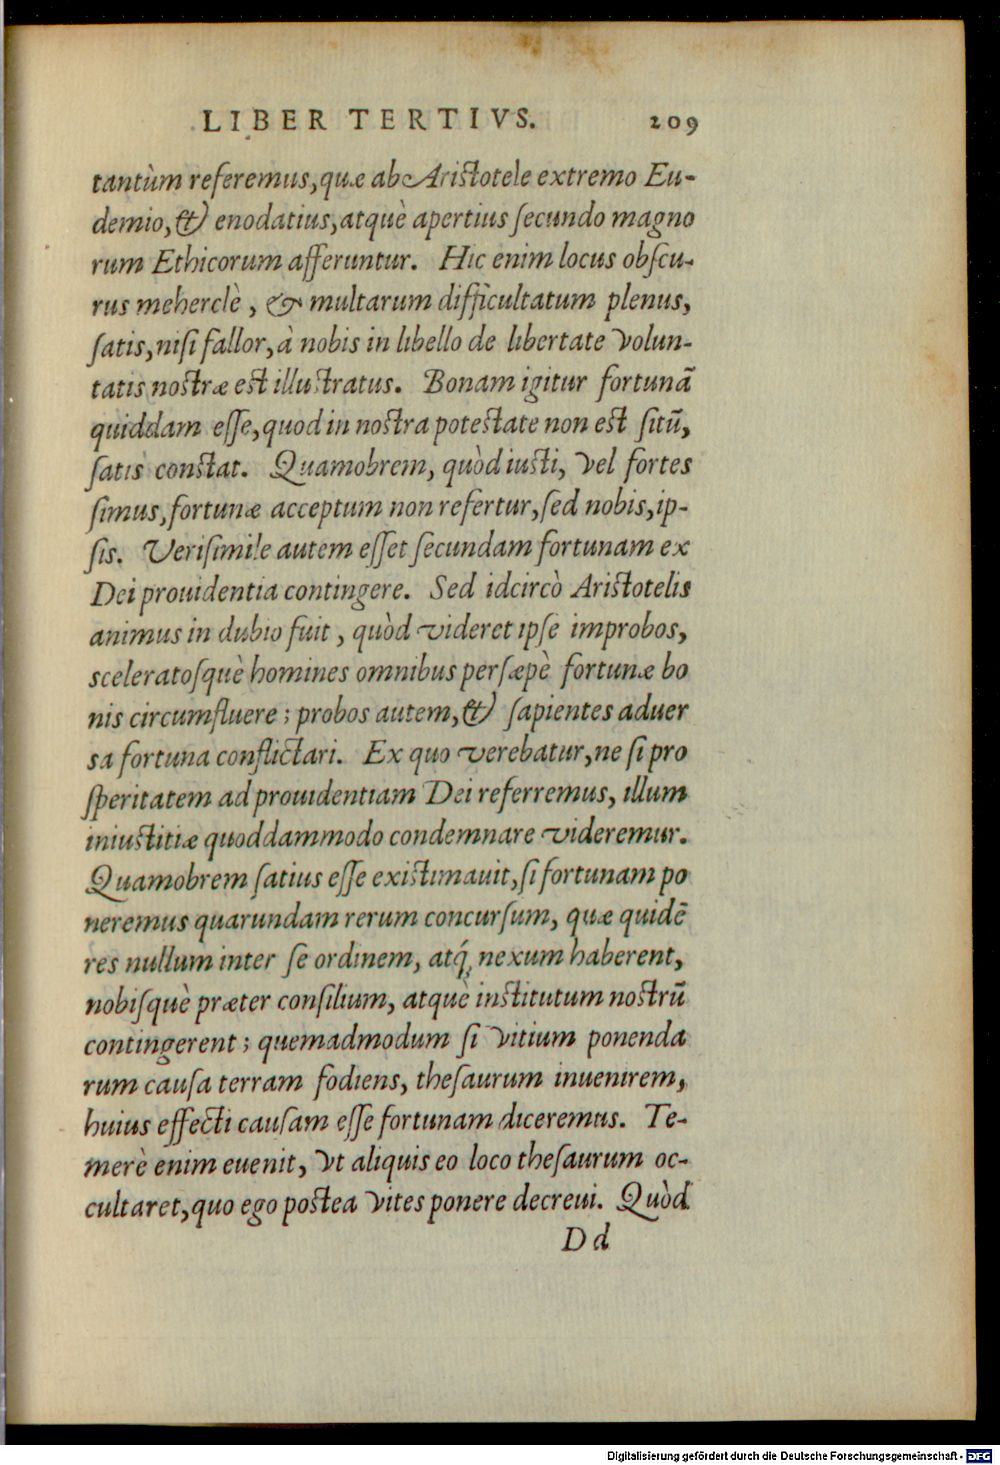 LIBER TERTIVS. 209
tantùm referemus, quæ ab Aristotele extremo Eu-
demio, & enodatius, atquè apertius ſecundo magno
rum Ethicorum afferuntur. Hic enim locus obſcu-
rus meherclè, & multarum difficultatum plenus,
ſatis, niſi fallor, à nobis in libello de libertate volun-
tatis nostræ est illustratus. Bonam igitur fortunã
quiddam eſſe, quod in nostra potestate non est ſitũ,
ſatis constat. Quamobrem, quòd iusti, vel fortes
ſimus, fortunæ acceptum non refertur, ſed nobis, ip-
ſis. Veriſimile autem eſſet ſecundam fortunam ex
Dei prouidentia contingere. Sed idcircò Aristotelis
animus in dubio fuit, quòd videret ipſe improbos,
sceleratoſquè homines omnibus perſæpè fortunæ bo
nis circumfluere; probos autem, & ſapientes aduer
sa fortuna conflictari. Ex quo verebatur, ne ſi pro
ſperitatem ad prouidentiam Dei referremus, illum
iniustitiæ quoddammodo condemnare videremur.
Quamobrem ſatius eſſe existimauit, ſi fortunam po
neremus quarundam rerum concurſum, quæ quidẽ
res nullum inter ſe ordinem, atq́; nexum haberent,
nobiſquè præter conſilium, atquè institutum nostrũ
contingerent; quemadmodum ſi vitium ponenda
rum cauſa terram fodiens, theſaurum inuenirem,
huius effecti cauſam eſſe fortunam diceremus. Te-
merè enim euenit, vt aliquis eo loco theſaurum oc-
cultaret, quo ego postea vites ponere decreui. Quòd
Dd
Digitalisierung gefördert durch die Deutsche Forschungsgemeinschaft - DFG